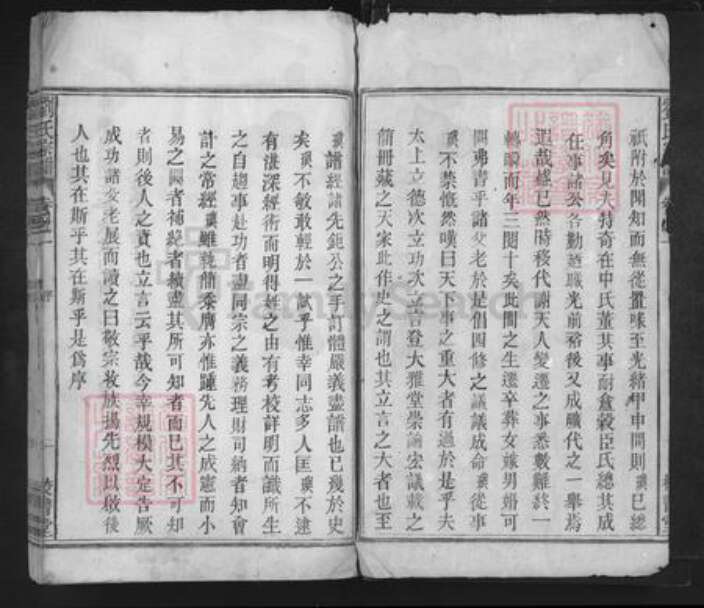 祇附於聞知而無從置喙至光緒甲申間則璵已總
角矣見夫特奇在中氏董其事耐倉穀臣氏總其成
任事諸公各勤職光前裕後又成職代之一舉焉
迄哉緜已然時移代謝天人變遷之事悉數難終一
轉瞬而年三閱十矣此間之生遷卒葬女嫁男婚可
聞弗書乎諸父老於是倡四修之議議成命璵從事
璵不禁慨然嘆曰天下事之重大者有過於是乎夫
太上立德次立功次立言登大雅堂崇論宏議載之
簡冊藏之天家此作史之謂也其立言之大者也至
璵譜經諸先鉅公之手訂體嚴義盡譜也已幾於史
矣璵不敏敢輕於一試乎惟幸同志多人匡璵不逮
有湛深經術而明得姓之由有考校詳明而識所生
之自趨事赴功者盡同宗之義務理財可納者知會
計之常經璵雖執簡秉膺亦惟踵先人之成憲而小
易之闕者補絕者續盡其所可知者而已其不可知
者則後人之責也立言云乎哉今幸規模大定告厥
成功諸父老展而讀之曰敬宗收族揚先烈以啟後
人也其在斯乎其在斯乎是為序
劉氏
序
一
FamilySearch